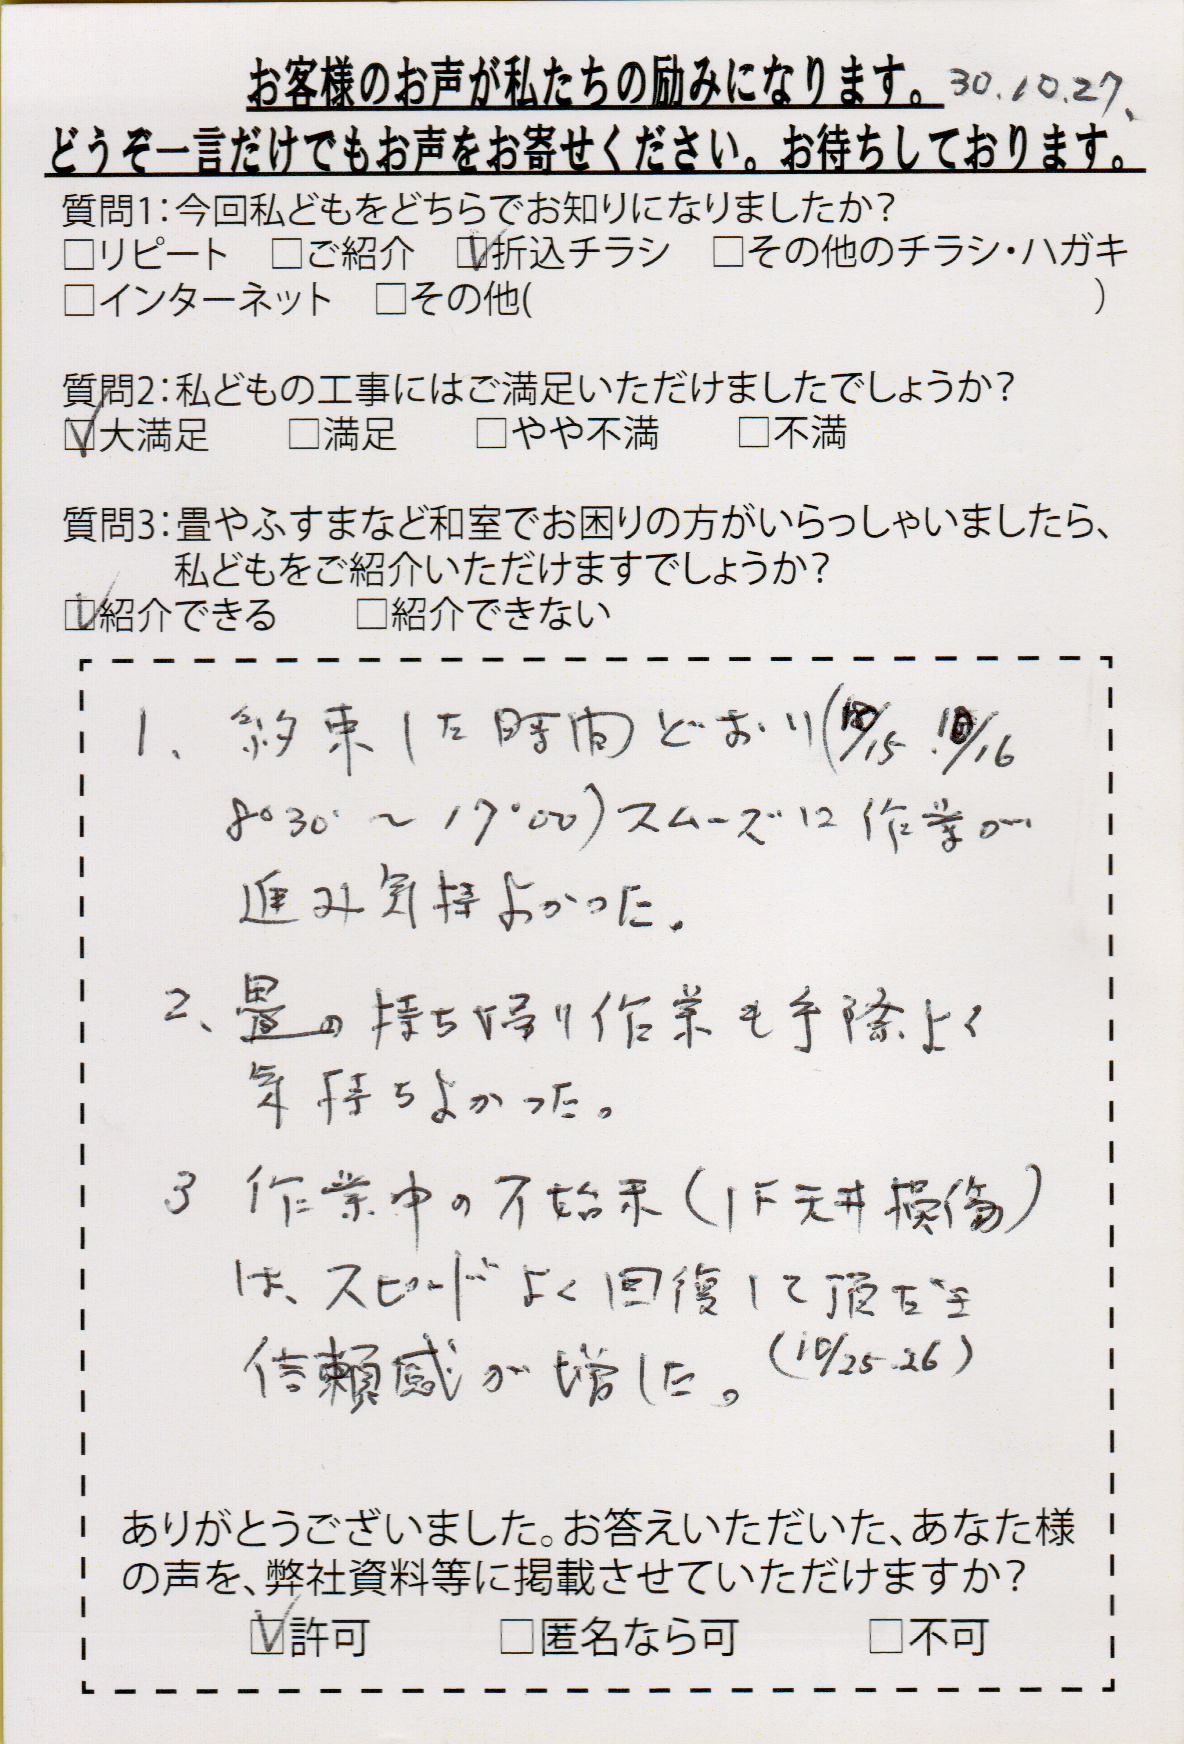 お客様のお声が私たちの励みになります。 30.10.27、
どうぞ一言だけでもお声をお寄せください。お待ちしております。
質問1：今回私どもをどちらでお知りになりましたか？
□リピート □ご紹介 ☑折込チラシ □その他のチラシ・ハガキ
□インターネット □その他( )
質問2：私どもの工事にはご満足いただけましたでしょうか？
☑大満足 □満足 □やや不満 □不満
質問3：畳やふすまなど和室でお困りの方がいらっしゃいましたら、
私どもをご紹介いただけますでしょうか？
☑紹介できる □紹介できない
1、約束した時間どおり(10/15.10/16
8°30′〜17°00)スムーズに作業が
進み気持よかった。
2、畳の持ち帰り作業も手際よく
気持ちよかった。
3 作業中の不始末(1F天井損傷)
は、スピードよく回復して頂だき
信頼感が増した。(10/25.26)
ありがとうございました。お答えいただいた、あなた様
の声を、弊社資料等に掲載させていただけますか？
☑許可 □匿名なら可 □不可